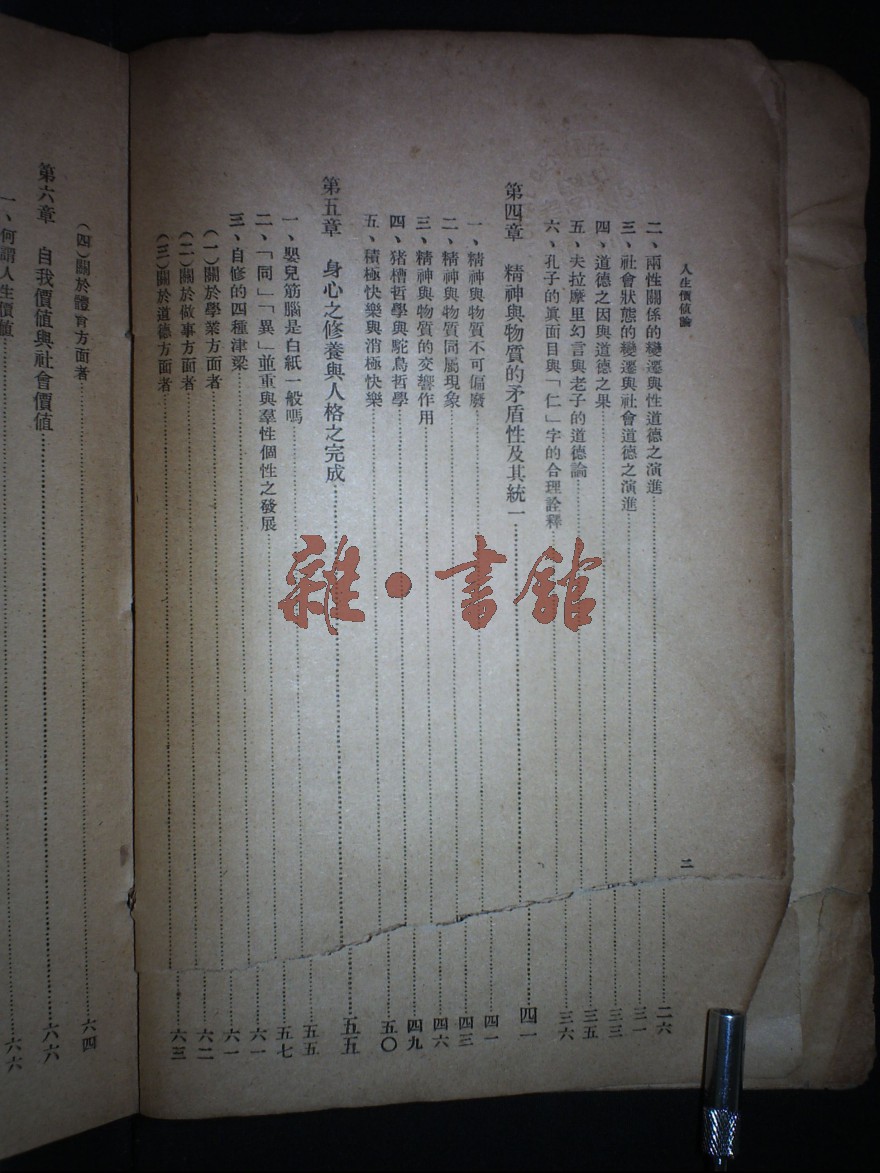 人生價值論
二
二、兩性關係的變遷與性道德之演進……二六
三、社會狀態的變遷與社會道德之演進……三一
四、道德之因與道德之果……三三
五、夫拉摩里幻言與老子的道德論……三五
六、孔子的眞面目與「仁」字的合理詮釋……三六
第四章　精神與物質的矛盾性及其統一……四一
一、精神與物質不可偏廢……四一
二、精神與物質同屬現象……四三
三、精神與物質的交響作用……四六
四、猪槽哲學與駝鳥哲學……四九
五、積極快樂與消極快樂……五〇
第五章　身心之修養與人格之完成……五五
一、嬰兒筋腦是白紙一般嗎……五五
二、「同」「異」並重與羣性個性之發展……五七
三、自修的四種津梁……六一
（一）關於學業方面者……六一
（二）關於做事方面者……六二
（三）關於道德方面者……六三
（四）關於體育方面者……六四
第六章　自我價值與社會價值……六六
一、何謂人生價值……六六
雜·書館